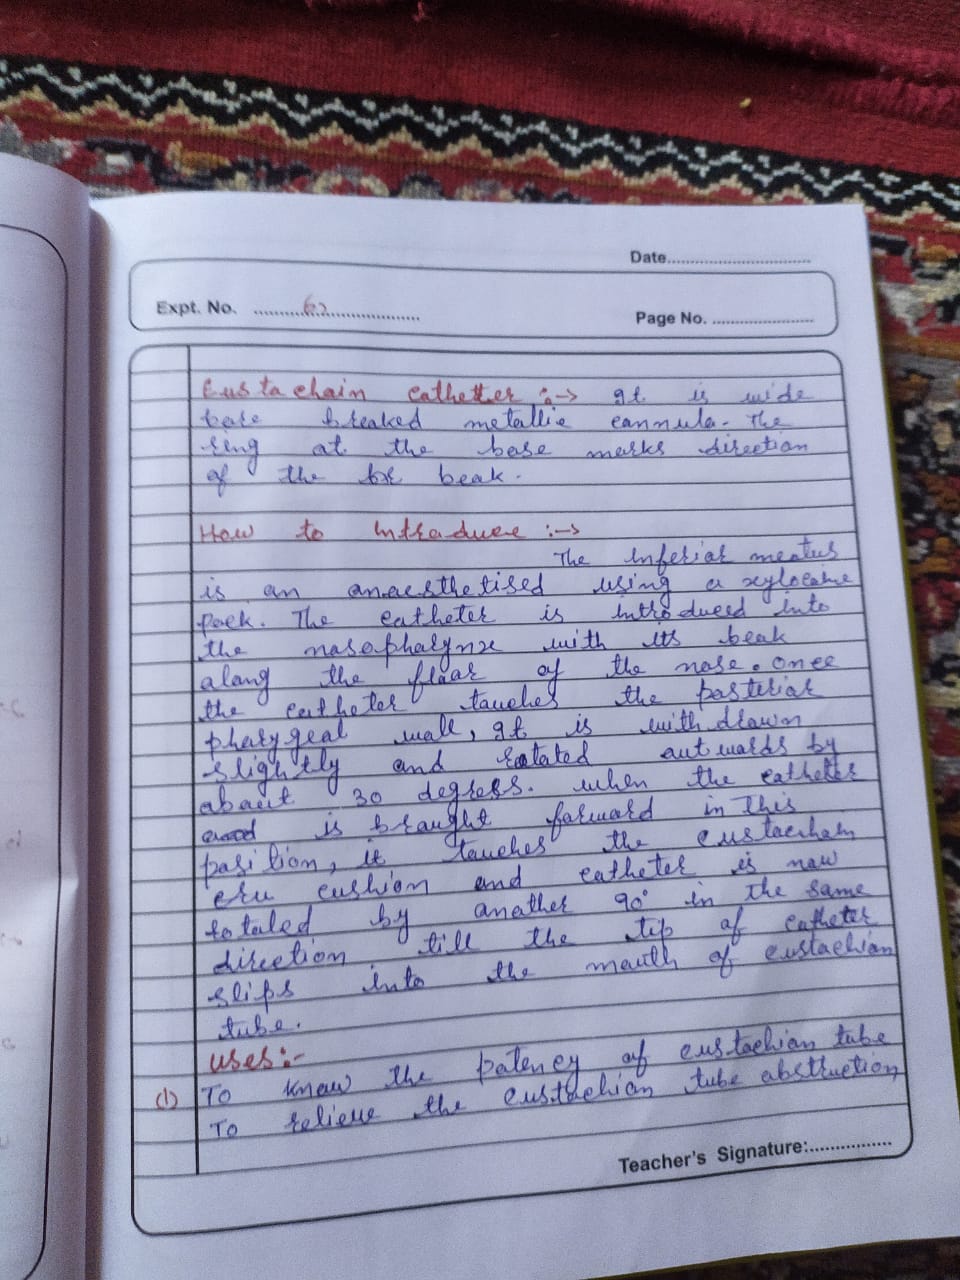 Date..............................
Expt. No. ..........62......................
Page No. .......................
Eustachain cathetter :-> It is wide
bare breaked metallic cannula. The
ring at the base marks direction
of the beak.
How to Introduce :->
The Inferiar meatus
is an anaesthetised using a xylocaine
pack. The catheter is Introduced into
the nasopharynx with its beak
alang the flaar of the nose. Once
the catheter tauches the pasteriar
pharygeal wall, It is with drawn
slightly and rotated autwards by
abaut 30 degress. when the catheter
is braught farward in This
pasition, it tauches the eustachain
cushion and catheter is naw
rotaled by anather 90° in the same
direction till the tip af catheter
slips into the mauth af eustachian
tube.
uses :-
(1) To knaw the patency af eustachian tube
To relieve the eustachian tube abstruction
Teacher's Signature:................